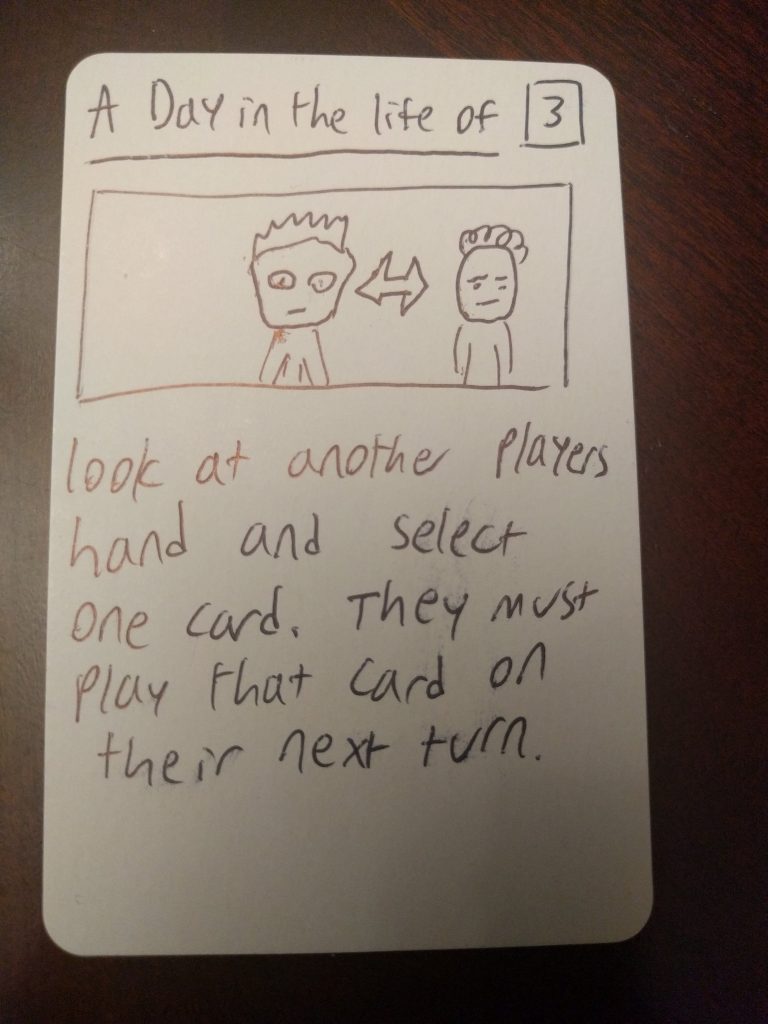 A Day in the life of 3
look at another players
hand and select
one card. They must
play that card on
their next turn.